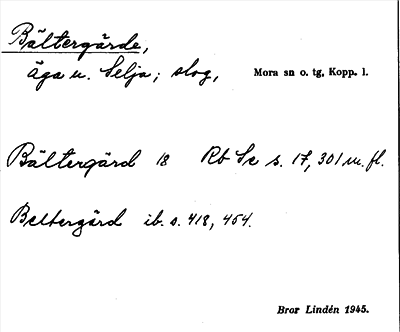 Bältergärde,
äga u. Selja; slog, Mora sn o. tg, Kopp. l.
Bältergärd 18 Rb Sc s. 17, 301 m. fl.
Beltergärd ib. s. 418, 454.
Bror Lindén 1945.